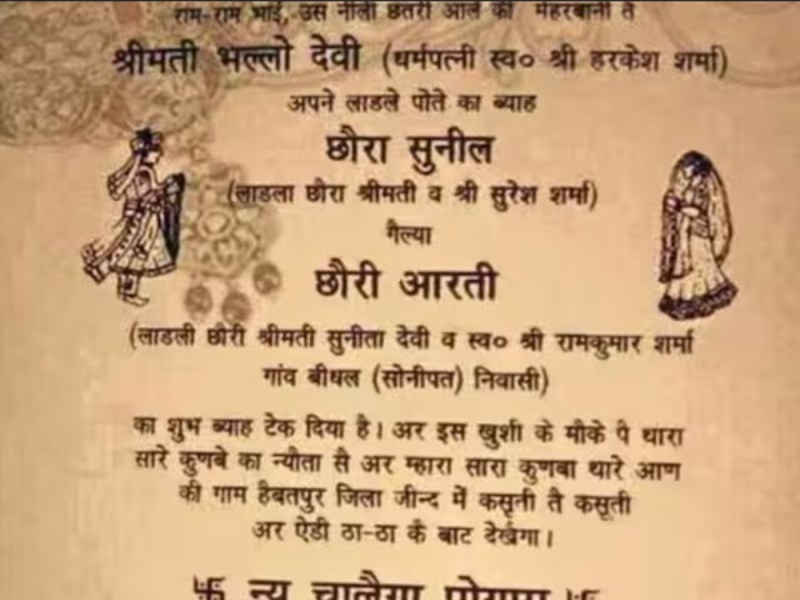 राम-राम भाई, उस नीली छतरी आले की मेहरबानी तै
श्रीमती भल्लो देवी (धर्मपत्नी स्व० श्री हरकेश शर्मा)
अपने लाडले पोते का ब्याह
छौरा सुनील
(लाडला छौरा श्रीमती व श्री सुरेश शर्मा)
गैल्या
छौरी आरती
(लाडली छौरी श्रीमती सुनीता देवी व स्व० श्री रामकुमार शर्मा
गांव बीधल (सोनीपत) निवासी)
का शुभ ब्याह टेक दिया है। अर इस खुशी के मौके पै थारा
सारे कुणबे का न्यौता सै अर म्हारा सारा कुणबा थारे आण
की गाम हैबतपुर जिला जीन्द में कसूती तै कसूती
अर ऐडी ठा-ठा कै बाट देखैगा।
卐 न्यू चालैगा प्रोग्राम 卐